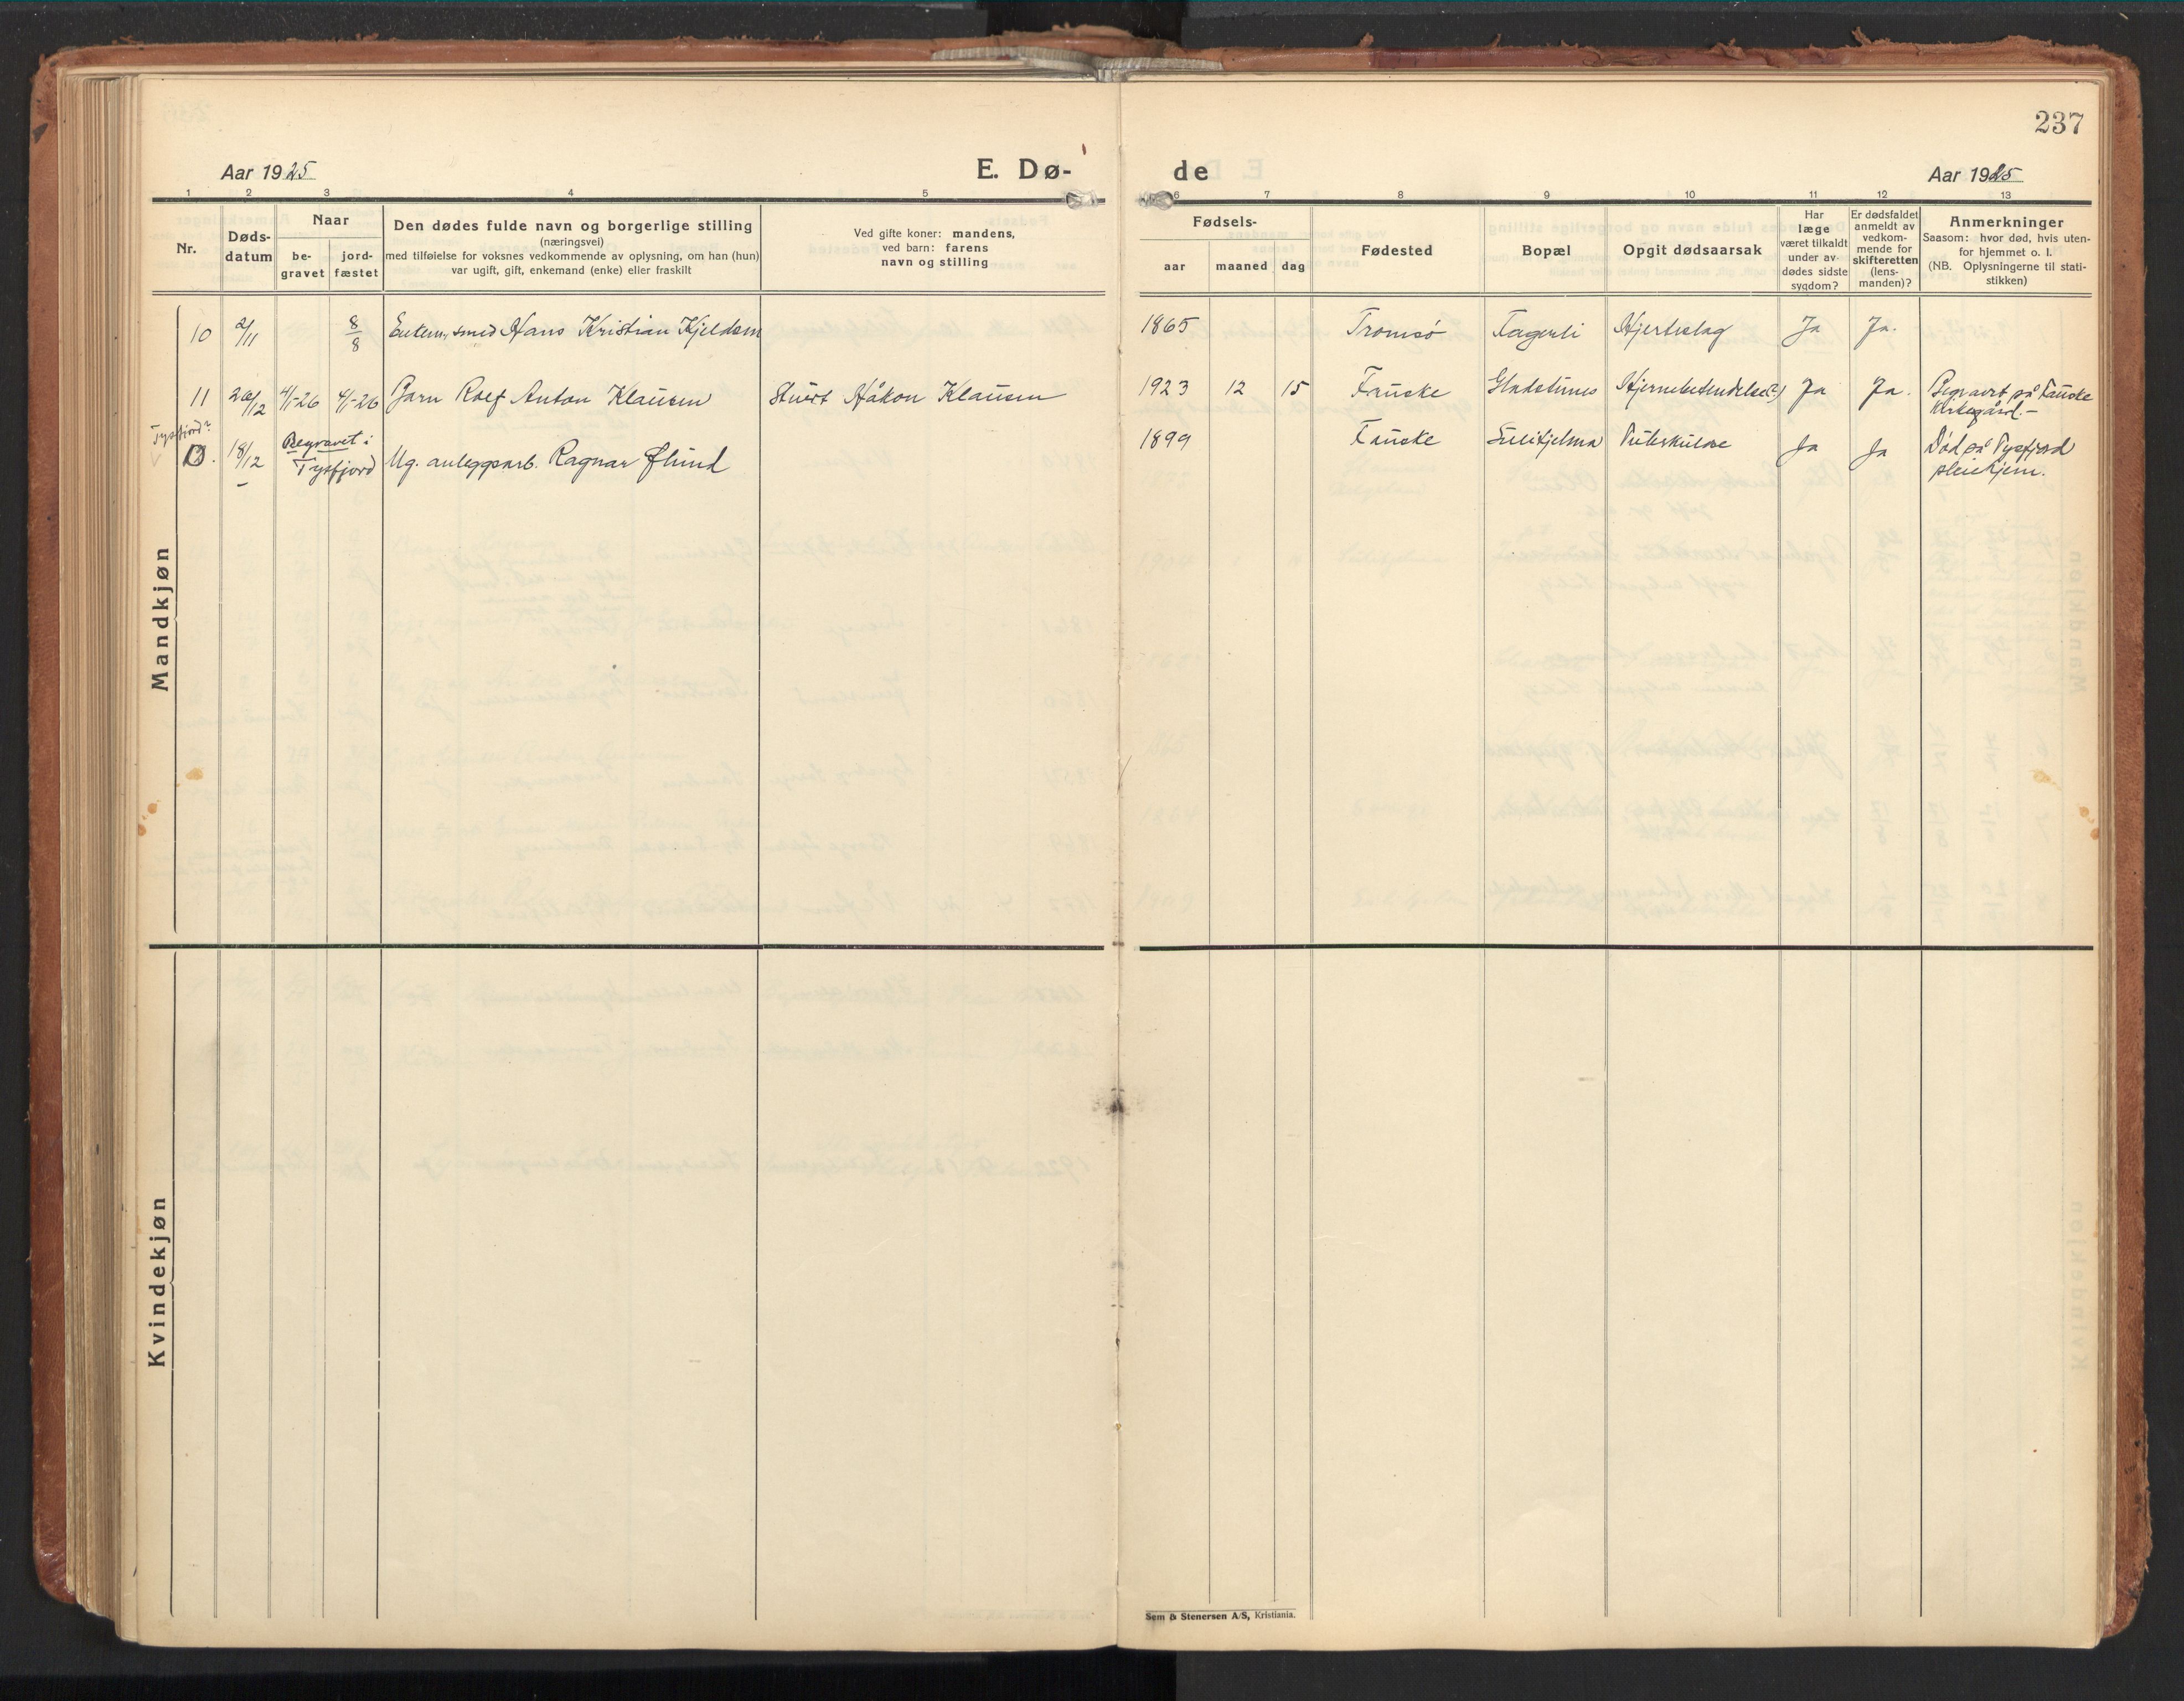 237
Aar 1925 E. Dø- de Aar 1925
1 2 3 4 5 6 7 8 9 10 11 12 13
Nr.
Døds-
datum
Naar
be-
gravet
jord-
fæstet
Den dødes fulde navn og borgerlige stilling
(næringsvei)
med tilføielse for voksnes vedkommende av oplysning, om han (hun)
var ugift, gift, enkemand (enke) eller fraskilt
Ved gifte koner: mandens,
ved barn: farens
navn og stilling
Fødsels-
aar maaned dag
Fødested
Bopæl
Opgit dødsaarsak
Har
læge
været tilkaldt
under av-
dødes sidste
sygdom?
Er dødsfaldet
anmeldt av
vedkom-
mende for
skifteretten
(lens-
manden)?
Anmerkninger
Saasom: hvor død, hvis uten-
for hjemmet o. l.
(NB. Oplysningerne til stati-
stikken)
Mandkjøn
10 2/11 8/8 smed Hans Kristian Kjeldsen 1865 Tromsø Fagerli Hjerteslag Ja Ja.
11 20/12 4/1-26 4/1-26 Barn Rolf Anton Klausen Stuert Håkon Klausen 1923 12 15 Fauske Hjernebetendelse(?) Ja Ja. Begravet på Fauske
kirkegård.-
Tysfjord?
12. 18/12 Begravet i
Tysfjord Ug. anleggsarb. Ragnar Øhind 1899 Fauske Sulitjelma Tuberkulose Ja Ja Død på Tysfjord
pleiehjem.
Kvindekjøn
Sem & Stenersen A/S, Kristiania.